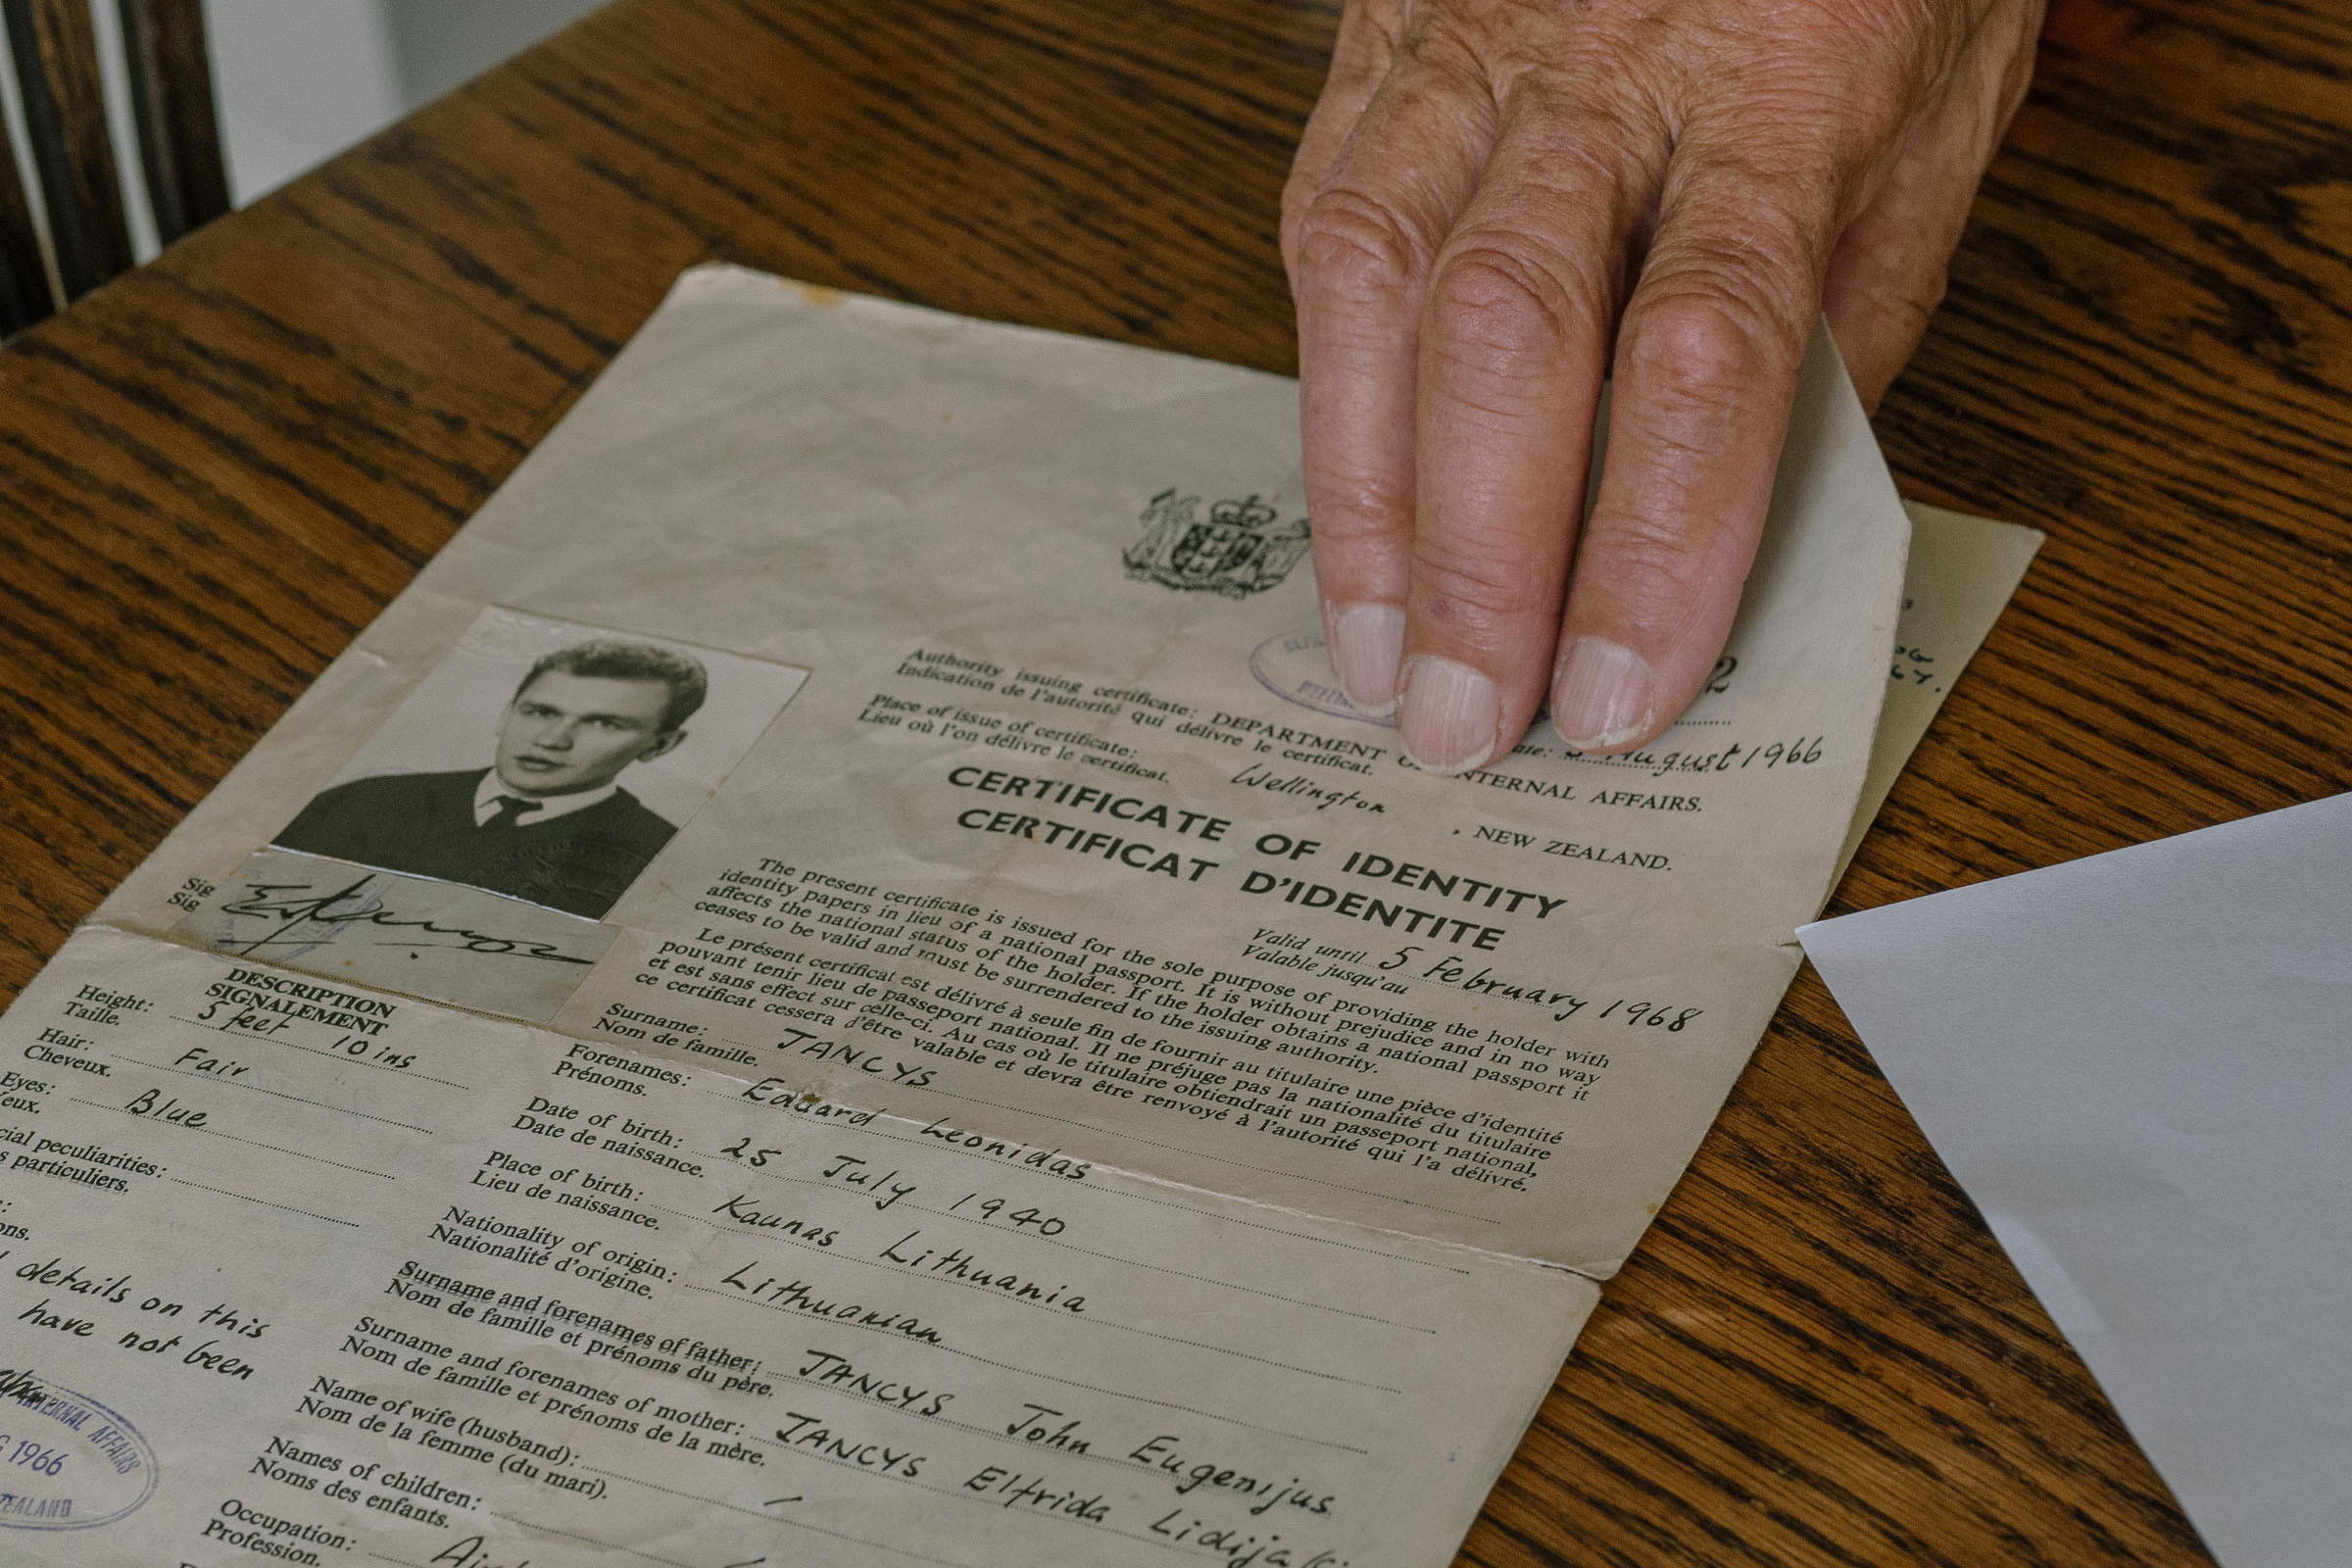 2
August 1966
Authority issuing certificate: DEPARTMENT INTERNAL AFFAIRS.
Indication de l'autorité qui délivre le certificat.
Place of issue of certificate: Wellington, NEW ZEALAND.
Lieu où l'on délivre le certificat.
CERTIFICATE OF IDENTITY
CERTIFICAT D'IDENTITE
Valid until 5 February 1968
Valable jusqu'au
The present certificate is issued for the sole purpose of providing the holder with
identity papers in lieu of a national passport. It is without prejudice and in no way
affects the national status of the holder. If the holder obtains a national passport it
ceases to be valid and must be surrendered to the issuing authority.
Le présent certificat est délivré à seule fin de fournir au titulaire une pièce d'identité
pouvant tenir lieu de passeport national. Il ne préjuge pas la nationalité du titulaire
et est sans effet sur celle-ci. Au cas où le titulaire obtiendrait un passeport national,
ce certificat cessera d'être valable et devra être renvoyé à l'autorité qui l'a délivré.
Sig
Sig
DESCRIPTION
SIGNALEMENT
Height: 5 feet 10 ins
Taille.
Hair: Fair
Cheveux.
Eyes: Blue
eux.
cial peculiarities:
particuliers.
ons.
details on this
have not been
INTERNAL AFFAIRS
1966
ZEALAND
Surname: JANCYS
Nom de famille.
Forenames: Eduard Leonidas
Prénoms.
Date of birth: 25 July 1940
Date de naissance.
Place of birth: Kaunas Lithuania
Lieu de naissance.
Nationality of origin: Lithuanian
Nationalité d'origine.
Surname and forenames of father: JANCYS John Eugenijus
Nom de famille et prénoms du père.
Surname and forenames of mother: JANCYS Elfrida Lidija
Nom de famille et prénoms de la mère.
Name of wife (husband):
Nom de la femme (du mari).
Names of children:
Noms des enfants.
Occupation:
Profession.